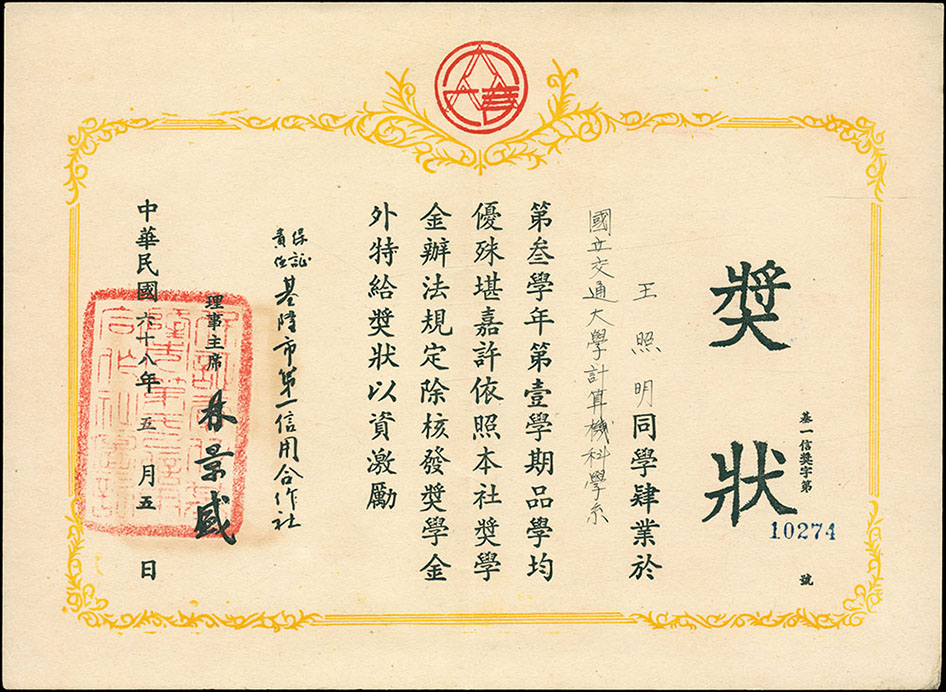 獎狀
基一信獎字第
10274
號
王照明同學肄業於
國立交通大學計算機科學系
第叁學年第壹學期品學均
優殊堪嘉許依照本社獎學
金辦法規定除核發獎學金
外特給獎狀以資激勵
保証
責任
基隆市第一信用合作社
理事主席
林景盛
中華民國六十八年五月五日